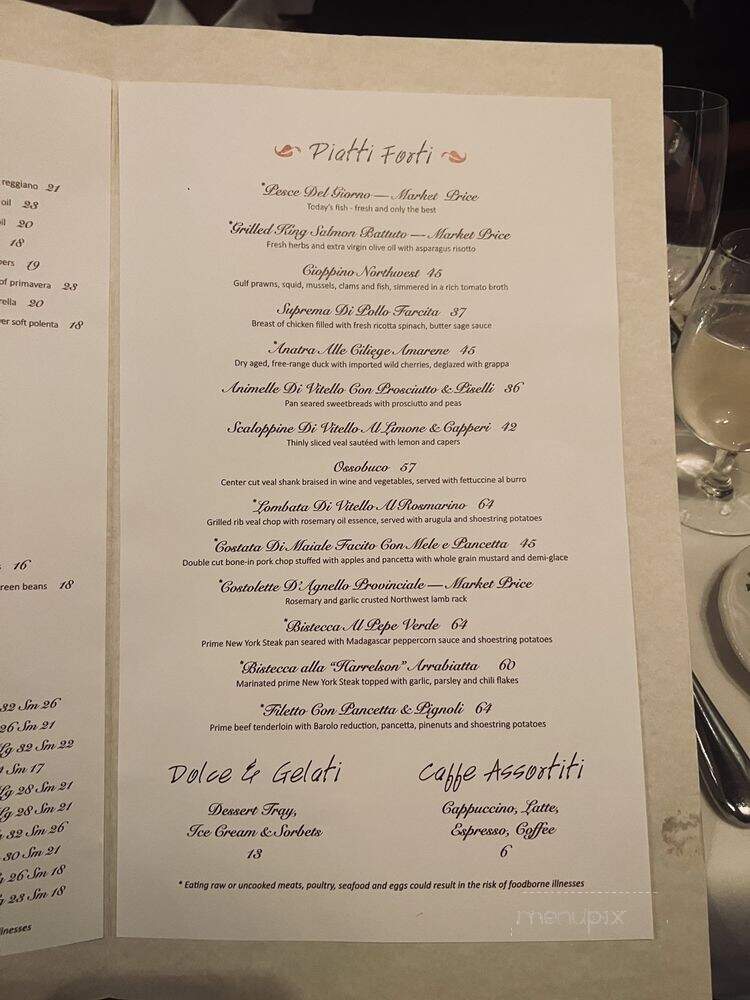 reggiano 21
oil 23
il 20
18
pers 19
of primavera 23
rella 20
ver soft polenta 18
16
reen beans 18
32 Sm 26
26 Sm 21
Lg 32 Sm 22
Sm 17
Lg 28 Sm 21
Lg 28 Sm 21
32 Sm 26
30 Sm 21
26 Sm 18
23 Sm 18
illnesses
Piatti Forti
*Pesce Del Giorno — Market Price
Today's fish - fresh and only the best
*Grilled King Salmon Battuto — Market Price
Fresh herbs and extra virgin olive oil with asparagus risotto
Cioppino Northwest 45
Gulf prawns, squid, mussels, clams and fish, simmered in a rich tomato broth
Suprema Di Pollo Farcita 37
Breast of chicken filled with fresh ricotta spinach, butter sage sauce
*Anatra Alle Ciliege Amarene 45
Dry aged, free-range duck with imported wild cherries, deglazed with grappa
Animelle Di Vitello Con Prosciutto & Piselli 36
Pan seared sweetbreads with prosciutto and peas
Scaloppine Di Vitello Al Limone & Capperi 42
Thinly sliced veal sautéed with lemon and capers
Ossobuco 57
Center cut veal shank braised in wine and vegetables, served with fettuccine al burro
*Lombata Di Vitello Al Rosmarino 64
Grilled rib veal chop with rosemary oil essence, served with arugula and shoestring potatoes
*Costata Di Maiale Facito Con Mele e Pancetta 45
Double cut bone-in pork chop stuffed with apples and pancetta with whole grain mustard and demi-glace
*Costolette D'Agnello Provinciale — Market Price
Rosemary and garlic crusted Northwest lamb rack
*Bistecca Al Pepe Verde 64
Prime New York Steak pan seared with Madagascar peppercorn sauce and shoestring potatoes
*Bistecca alla "Harrelson" Arrabiatta 60
Marinated prime New York Steak topped with garlic, parsley and chili flakes
*Filetto Con Pancetta & Pignoli 64
Prime beef tenderloin with Barolo reduction, pancetta, pinenuts and shoestring potatoes
Dolce & Gelati
Dessert Tray,
Ice Cream & Sorbets
13
Caffe Assortiti
Cappuccino, Latte,
Espresso, Coffee
6
* Eating raw or uncooked meats, poultry, seafood and eggs could result in the risk of foodborne illnesses
menupix